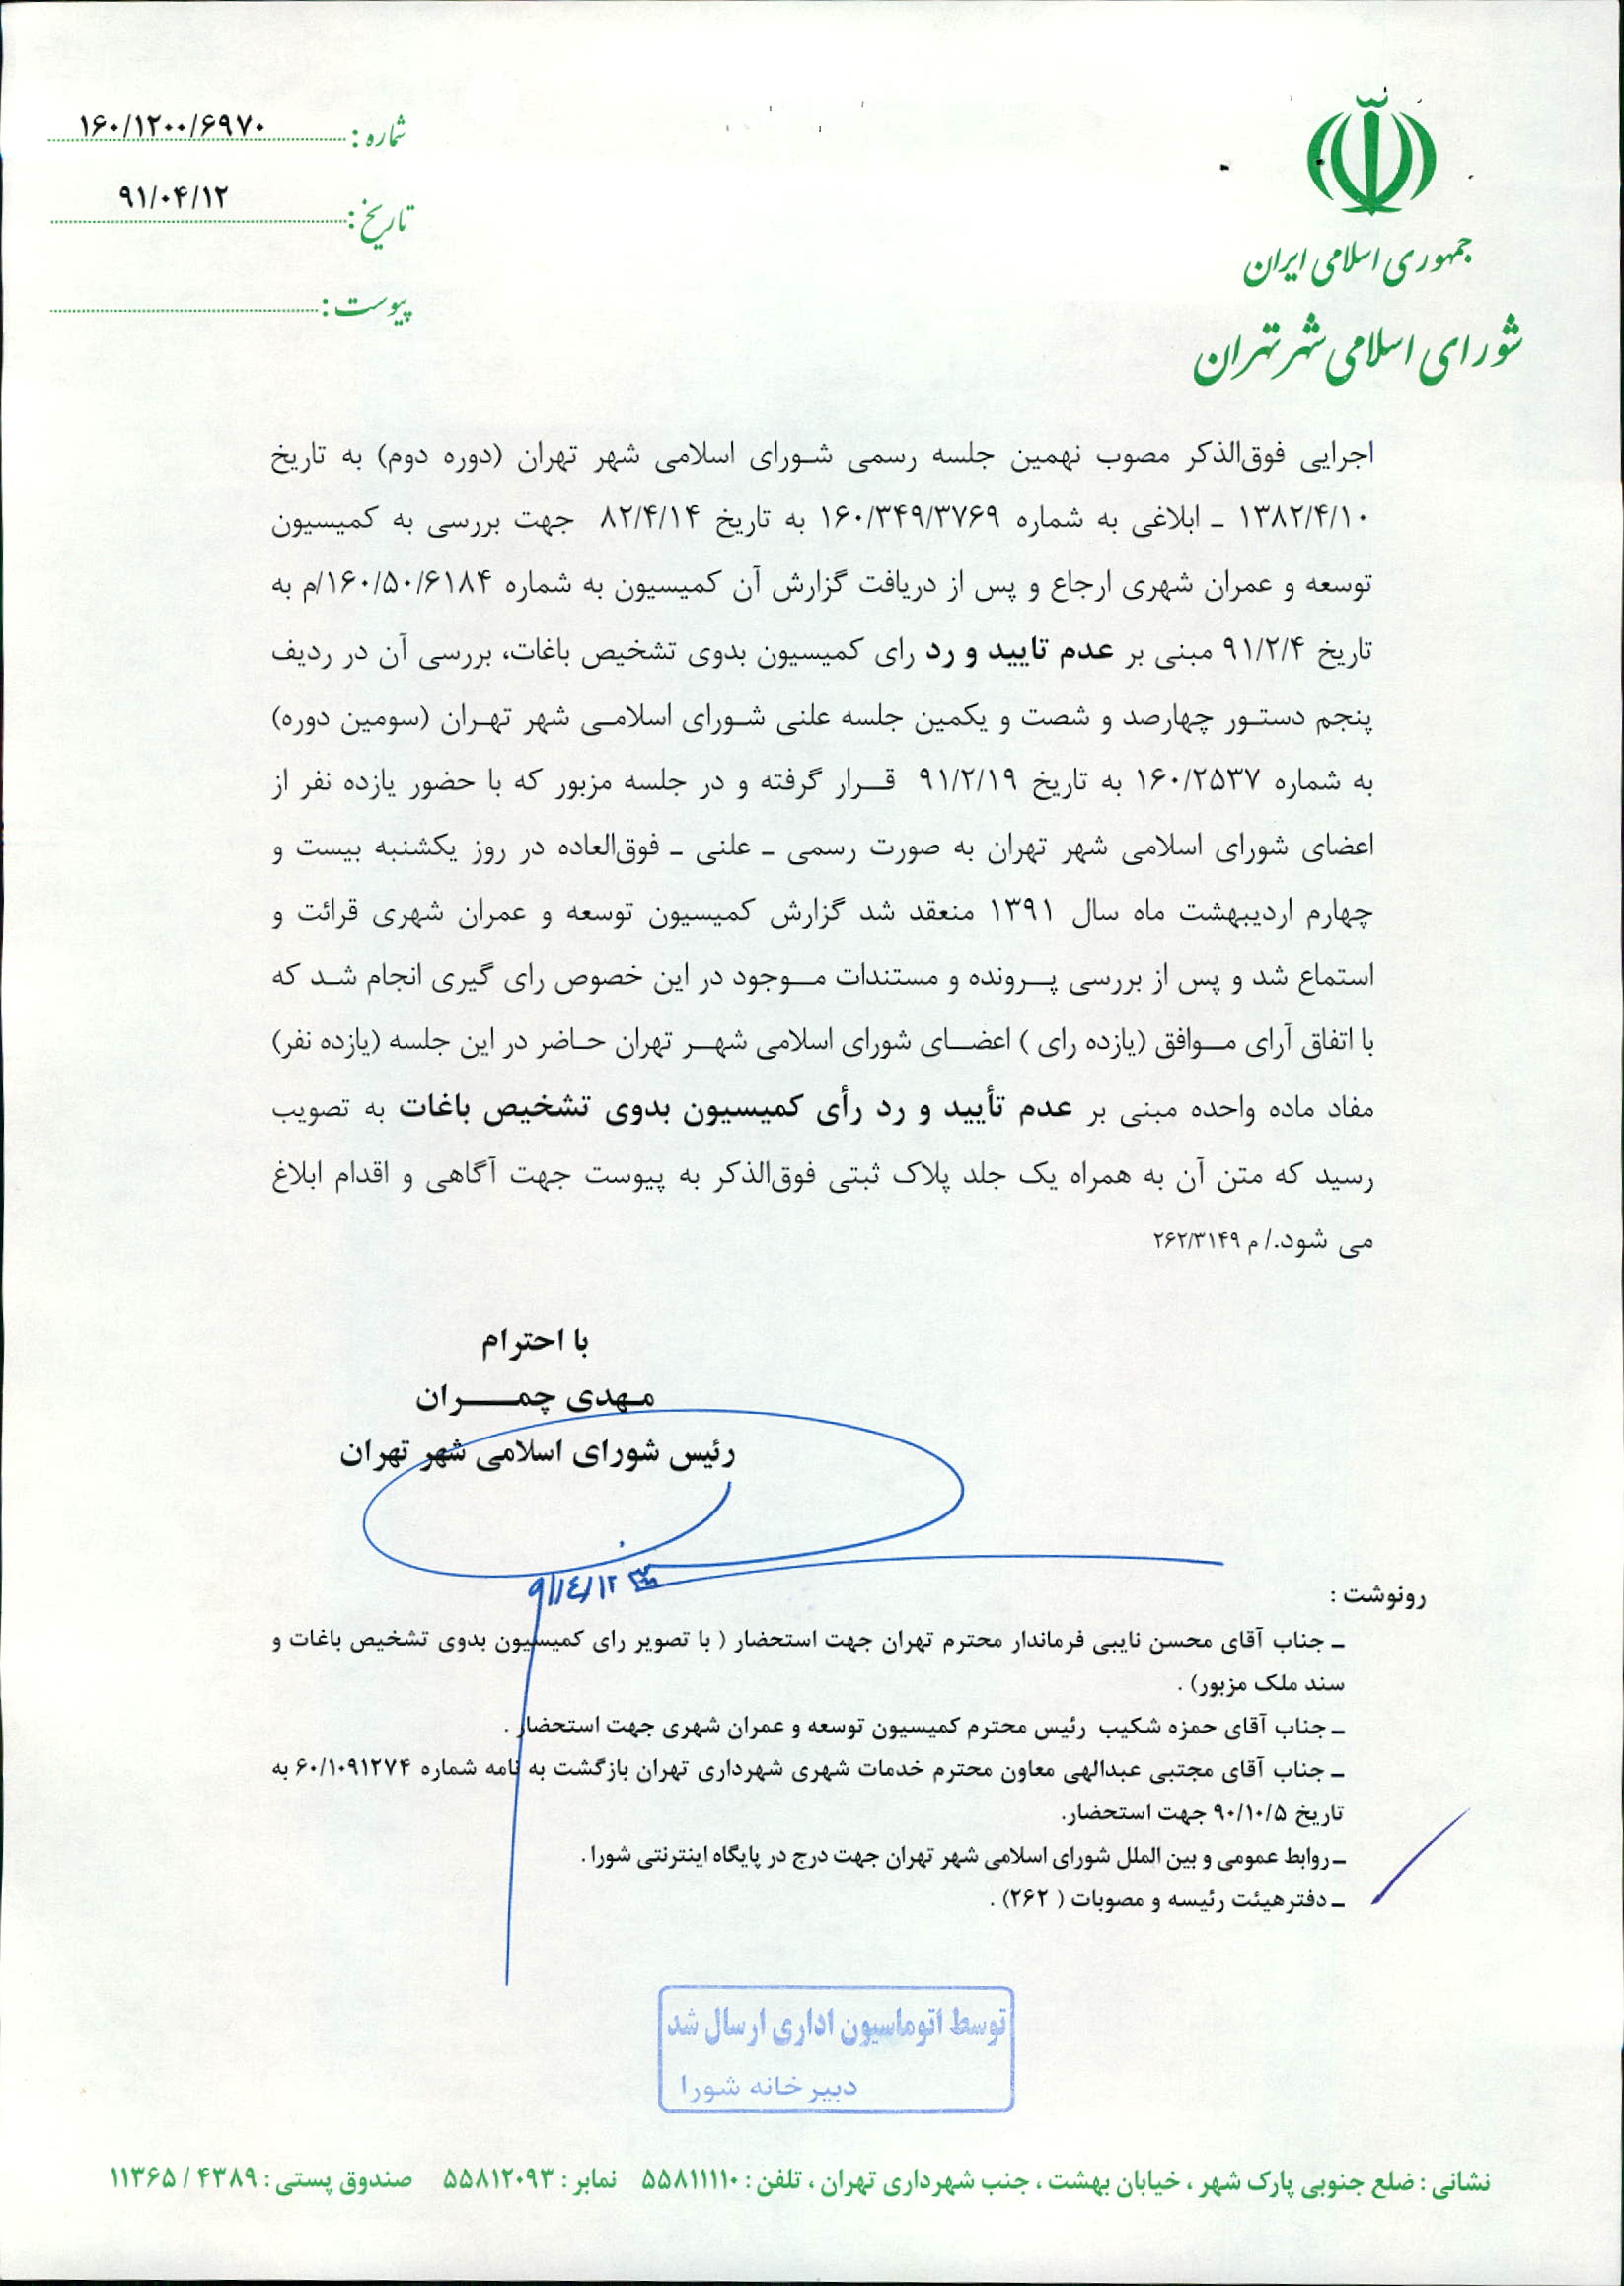 جمهوری اسلامی ایران
شورای اسلامی شهر تهران
شماره : ۱۶۰/۱۲۰۰/۶۹۷۰
تاریخ : ۹۱/۰۴/۱۲
پیوست :
اجرایی فوق‌الذکر مصوب نهمین جلسه رسمی شـورای اسلامی شهر تهران (دوره دوم) به تاریخ
۱۳۸۲/۴/۱۰ ـ ابلاغی به شماره ۱۶۰/۳۴۹/۳۷۶۹ به تاریخ ۸۲/۴/۱۴ جهت بررسی به کمیسیون
توسعه و عمران شهری ارجاع و پس از دریافت گزارش آن کمیسیون به شماره ۱۶۰/۵۰/۶۱۸۴/م به
تاریخ ۹۱/۲/۴ مبنی بر عدم تایید و رد رای کمیسیون بدوی تشخیص باغات، بررسی آن در ردیف
پنجم دستـور چهارصد و شصت و یکمین جلسه علنی شـورای اسلامـی شهر تهـران (سومین دوره)
به شماره ۱۶۰/۲۵۳۷ به تاریخ ۹۱/۲/۱۹ قـــرار گرفته و در جلسه مزبور که با حضور یازده نفر از
اعضای شورای اسلامی شهر تهران به صورت رسمی ـ علنی ـ فوق‌العاده در روز یکشنبه بیست و
چهارم اردیبهشت ماه سال ۱۳۹۱ منعقد شد گزارش کمیسیون توسعه و عمران شهری قرائت و
استماع شد و پس از بررسی پـــرونده و مستندات مـــوجود در این خصوص رای گیری انجام شـد که
با اتفاق آرای مـــوافق (یازده رای ) اعضـــای شورای اسلامی شهـــر تهران حـاضر در این جلسه (یازده نفر)
مفاد ماده واحده مبنی بر عدم تأیید و رد رأی کمیسیون بدوی تشخیص باغات به تصویب
رسید که متن آن به همراه یک جلد پلاک ثبتی فوق‌الذکر به پیوست جهت آگاهی و اقدام ابلاغ
می شود./ م ۲۶۲/۳۱۴۹
با احترام
مـهدی چمـــــران
رئیس شورای اسلامی شهر تهران
۹۱/٤/۱۲
رونوشت :
ـ جناب آقای محسن نایبی فرماندار محترم تهران جهت استحضار ( با تصویر رای کمیسیون بدوی تشخیص باغات و
سند ملک مزبور) .
ـ جناب آقای حمزه شکیب رئیس محترم کمیسیون توسعه و عمران شهری جهت استحضار .
ـ جناب آقای مجتبی عبدالهی معاون محترم خدمات شهری شهرداری تهران بازگشت به نامه شماره ۶۰/۱۰۹۱۲۷۴ به
تاریخ ۹۰/۱۰/۵ جهت استحضار.
ـ روابط عمومی و بین الملل شورای اسلامی شهر تهران جهت درج در پایگاه اینترنتی شورا .
ـ دفترهیئت رئیسه و مصوبات ( ۲۶۲) .
توسط اتوماسیون اداری ارسال شد
دبیرخانه شورا
نشانی : ضلع جنوبی پارک شهر ، خیابان بهشت ، جنب شهرداری تهران ، تلفن : ۵۵۸۱۱۱۱۰ نمابر : ۵۵۸۱۲۰۹۳ صندوق پستی : ۴۳۸۹ / ۱۱۳۶۵